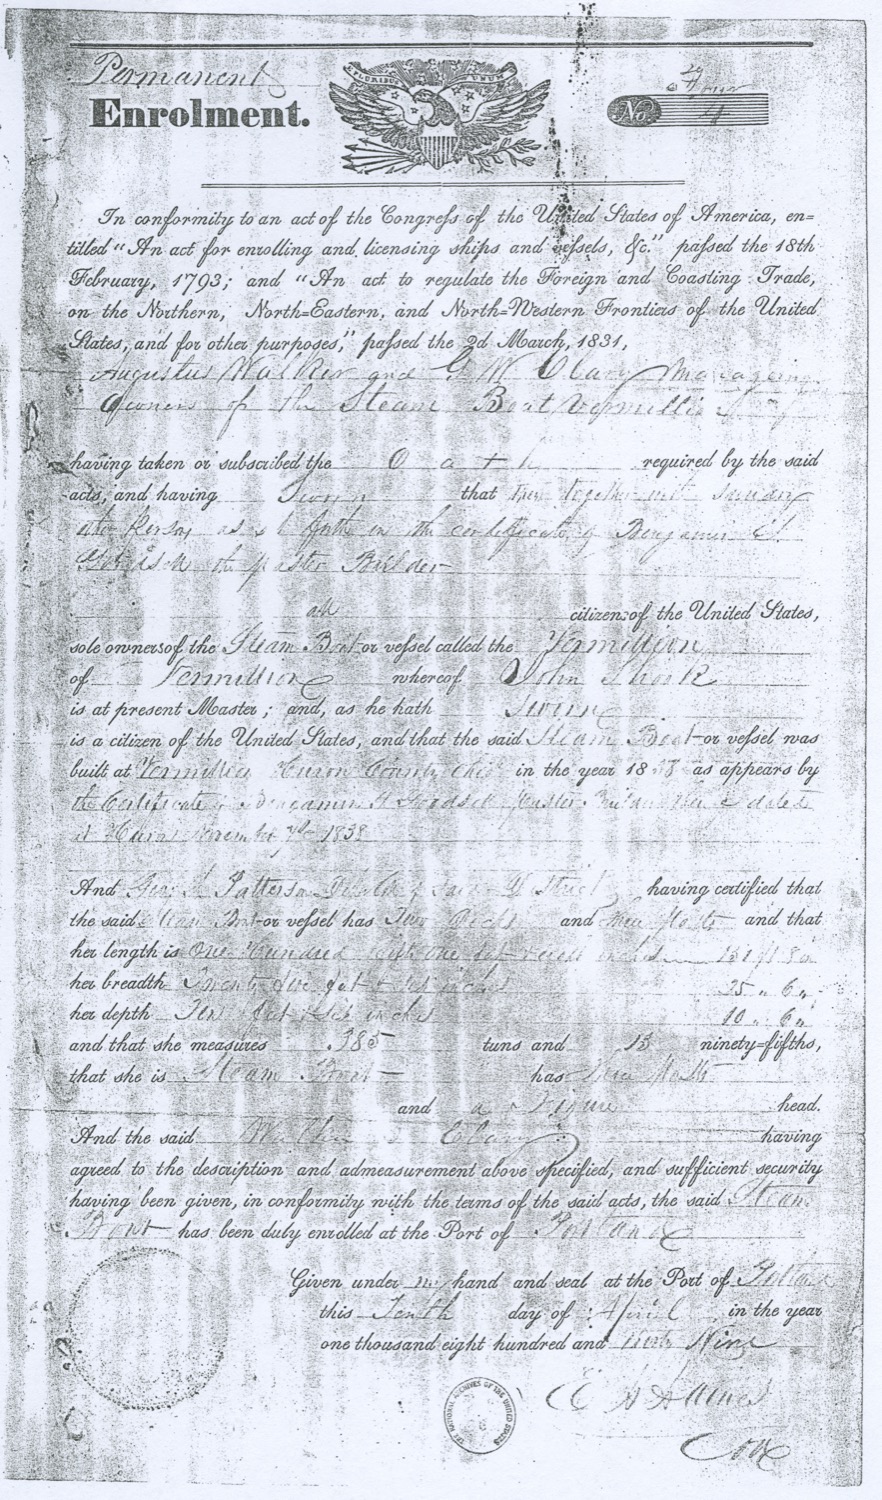 Permanent
Enrolment.
E PLURIBUS UNUM
No. Four
4
In conformity to an act of the Congreſs of the United States of America, en=
titled "An act for enrolling and licensing ships and veſsels, &c." paſsed the 18th
February, 1793; and "An act to regulate the Foreign and Coasting Trade,
on the Northern, North=Eastern, and North=Western Frontiers of the United
States, and for other purposes," paſsed the 2d March, 1831,
Augustus Walker and G W Clary Managing
Owners of the Steam Boat Vermillion
having taken or subscribed the Oath required by the said
acts, and having Sworn that they together with sundry
other Persons as set forth in the certificate of Benjamin
the Master Builder
all citizens of the United States,
sole owners of the Steam Boat or veſsel called the Vermillion
of Vermillion whereof John Shook
is at present Master; and, as he hath Sworn
is a citizen of the United States, and that the said Steam Boat or veſsel was
built at Vermillion Huron County Ohio in the year 1838 as appears by
the Certificate of Benjamin Master Builder dated
at Huron November 1838
And Geo Patterson having certified that
the said Steam Boat or veſsel has Two Decks and Masts and that
her length is One Hundred fifty one feet inches 151
her breadth Twenty five feet & six inches 25 " 6 "
her depth Ten feet & six inches 10 " 6 "
and that she measures 385 tuns and 13 ninety=fifths,
that she is Steam Boat has Masts
and a Figure head.
And the said Walker Clary having
agreed to the description and admeasurement above specified, and sufficient security
having been given, in conformity with the terms of the said acts, the said Steam
Boat has been duly enrolled at the Port of Portland
Given under my hand and seal at the Port of Portland
this Tenth day of April in the year
one thousand eight hundred and thirty Nine
THE NATIONAL ARCHIVES OF THE UNITED STATES